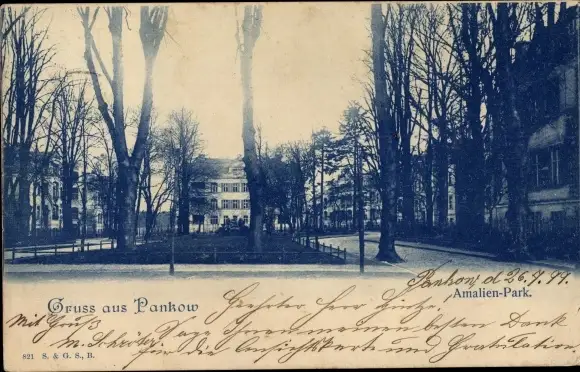 Pankow, d 26.7.99
Gruss aus Pankow
Amalien-Park.
Geehrter Herr Hintze,
Mit Gruß
M. Schröter.
Sage Ihnen meinen besten Dank
für die Ansichtskarte und Gratulation.
821 S. & G. S., B.